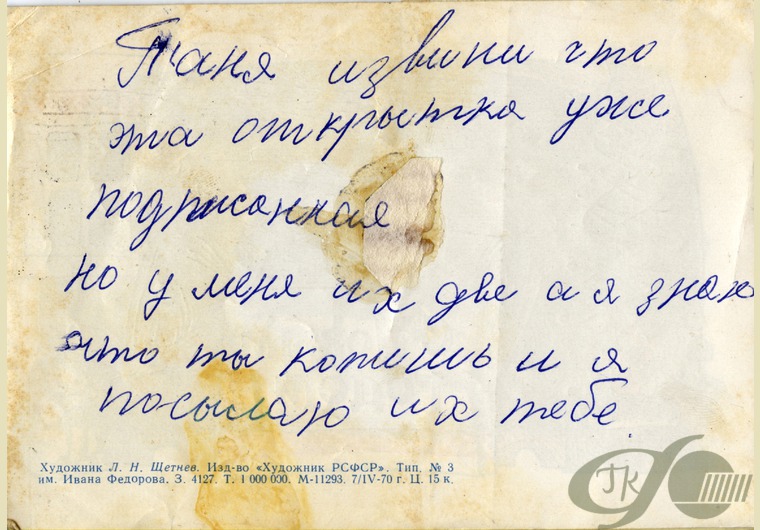 Таня извини что
эта открытка уже
подписанная
но у меня их две а я знаю
что ты копишь и я
посылаю их тебе
Художник Л. Н. Щетнев. Изд-во «Художник РСФСР». Тип. № 3
им. Ивана Федорова. З. 4127. Т. 1 000 000. М-11293. 7/IV-70 г. Ц. 15 к.
ГК